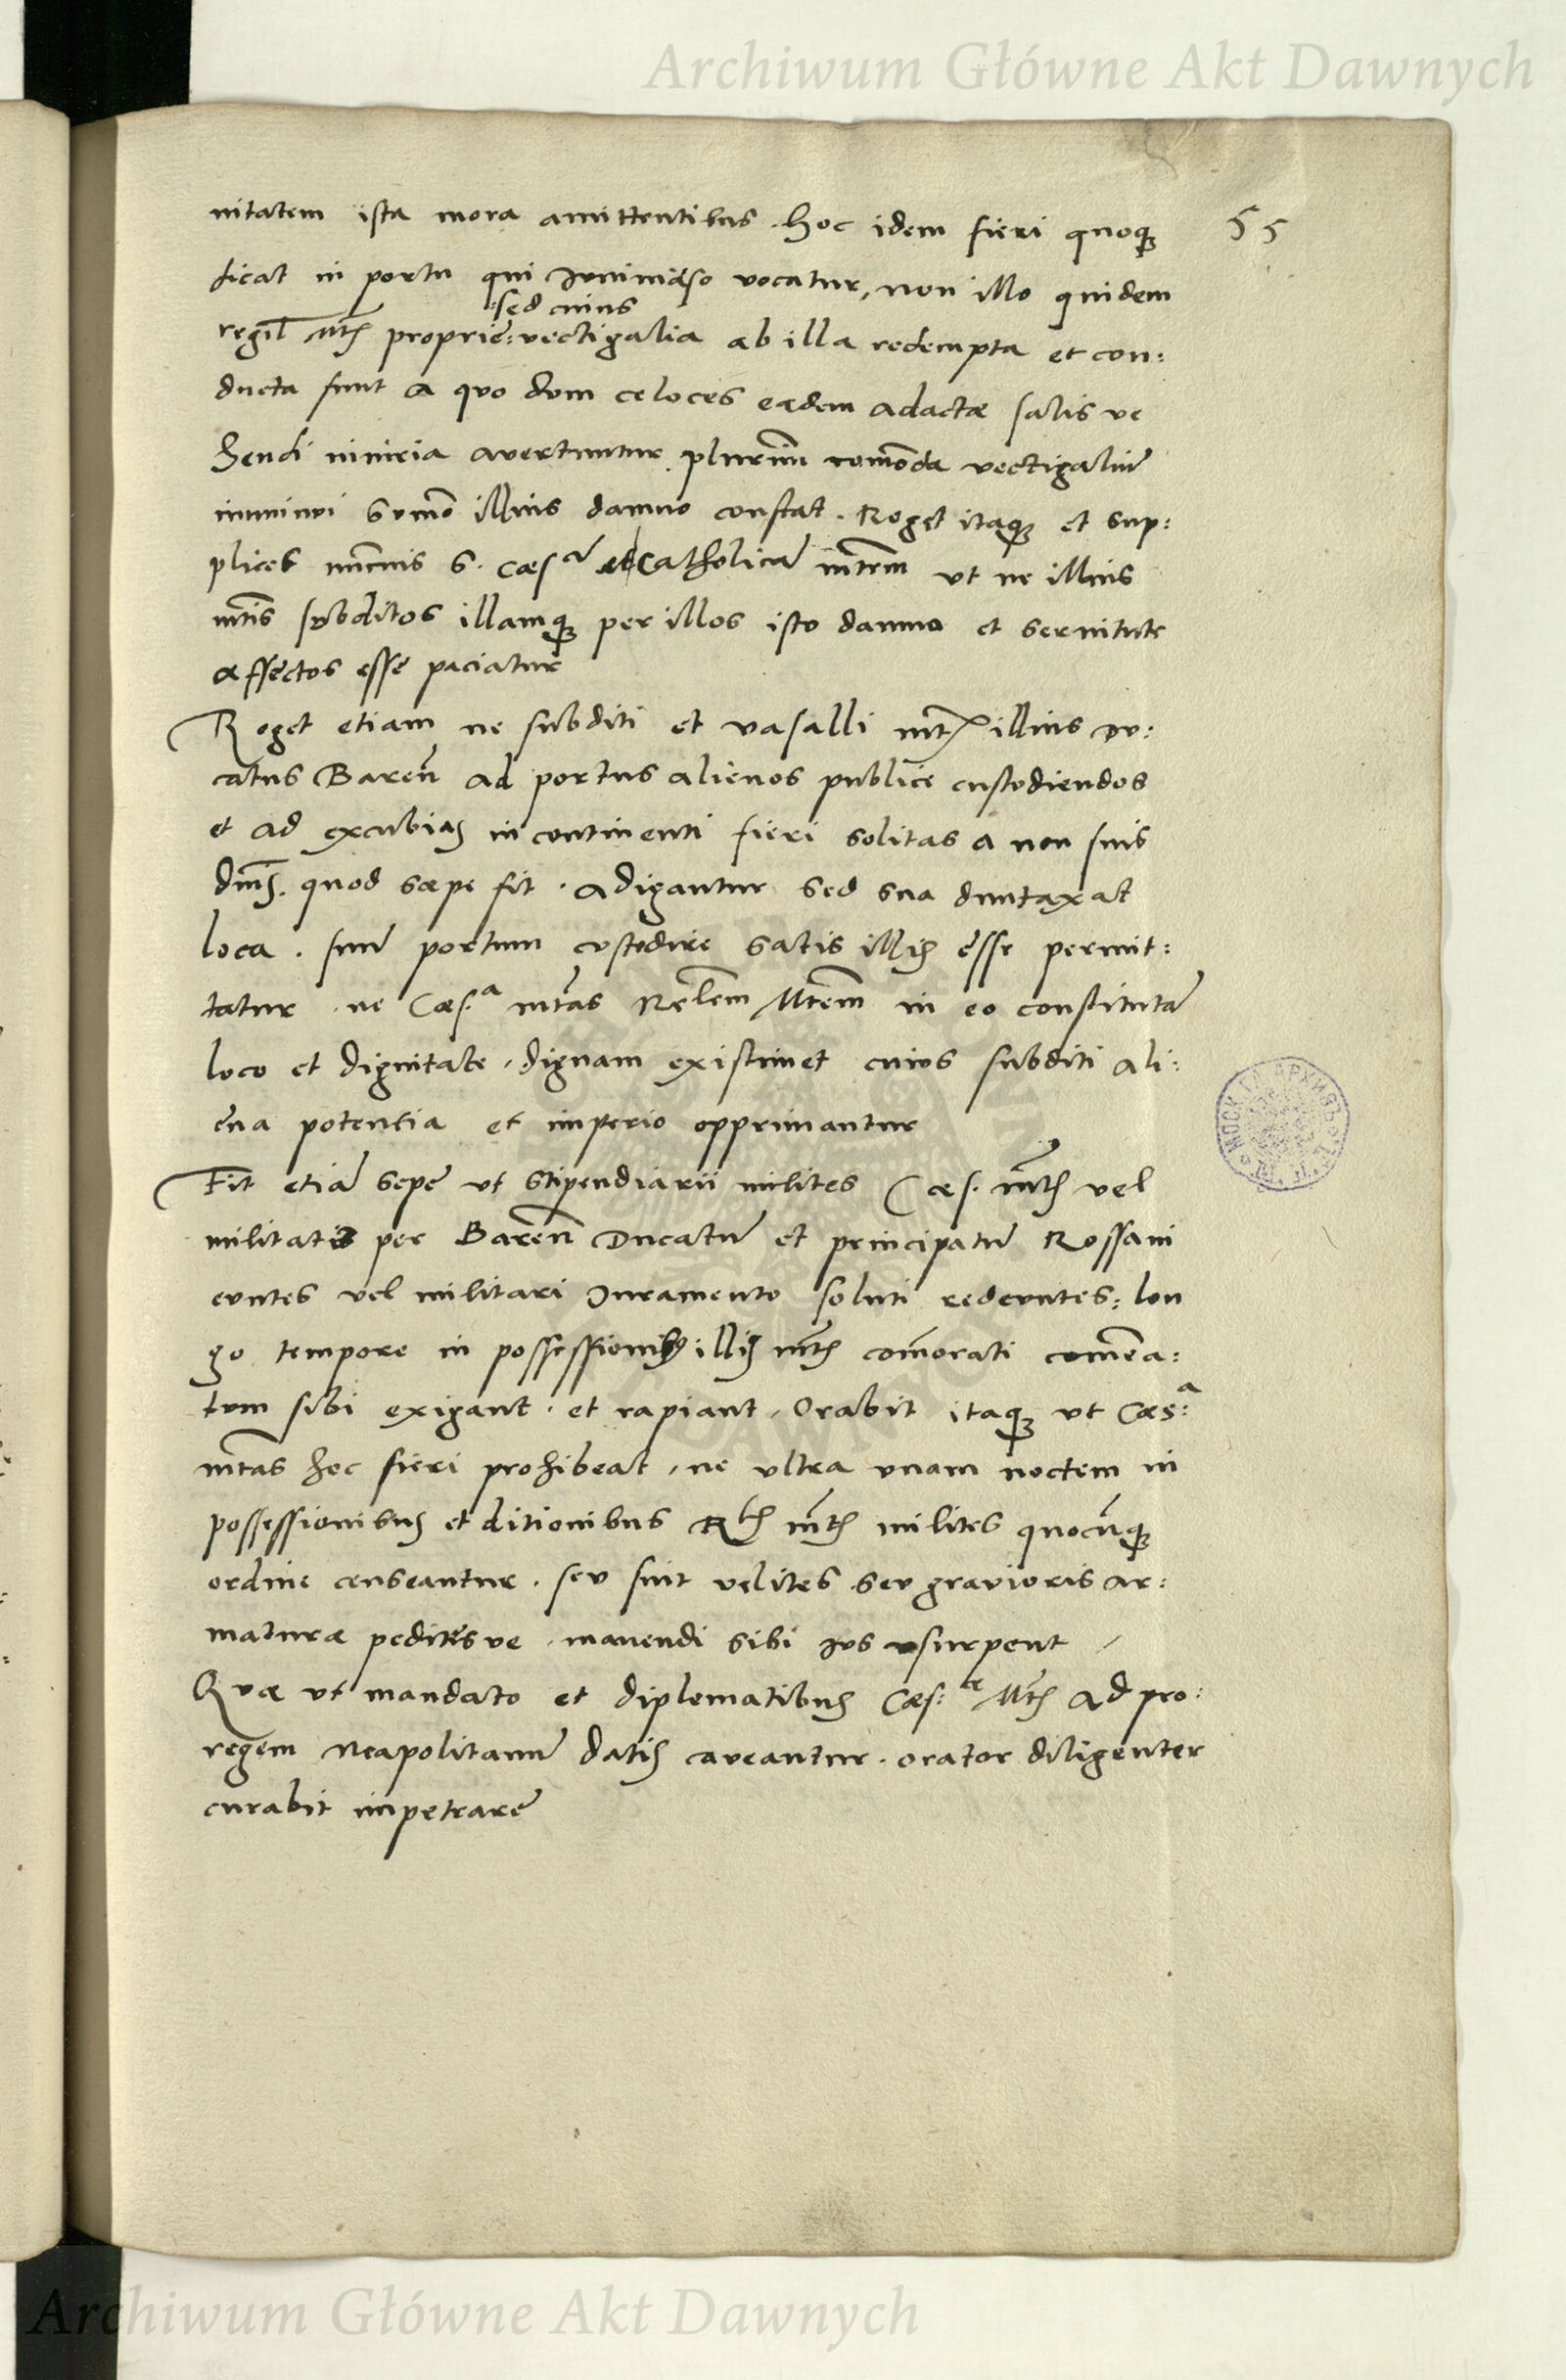 Archiwum Główne Akt Dawnych
55
nitatem ista mora amittentibus . Hoc idem fieri quoq3
dicat in portu qui vocatur, non illo quidem
sed cuius
regil Mtis propriẽ: vectigalia ab illa redempta et con:
ducta sunt a quo dum celoces eædem adactæ salis ve
hendi iniuria avertuntur plurimũ comõda vectigaliũ
imminui sũmo illius damno constat . Roget itaq3 et sup:
plicet nũcius S. Cæsa et Catholicã mtem ut ne illius
mtis subditos illamq3 per illos isto damno et servitute
affectos esse paciatur
Roget etiam ne subditi et vasalli mtis illius du:
catus Bareñ ad portus alienos publice custodiendos
et ad excubias in continenti fieri solitas a non suis
dnis . quod sæpe fit . adigantur sed sua duntaxat
loca . suũ portum custodire satis illis esse permit:
tatur . ne Cæs.a mtas Relem Mtem in eo constitutã
loco et dignitate , dignam existimet cuius subditi ali:
ena potentia et imperio opprimantur
Fit etiã sepe ut stipendiarii milites Cæs. mtis vel
militatũ per Bareñ Ducatũ et principatũ Rossani
euntes vel militari Iuramento soluti redeuntes: lon
go tempore in possessionib9 illis mtis comorati comẽa:
tum sibi exigant . et rapiant , Orabit itaq3 ut Cæs:a
mtas hoc fieri prohibeat , ne ultra unam noctem in
possessionibus et ditionibus Rlis mtis milites quocũq3
ordine censeantur . seu sint velites seu gravioris ar:
maturæ peditesve . manendi sibi ius usurpent /
Quæ ut mandato et diplematibus Cæs:re Mtis ad pro:
regem Neapolitanũ datis caveantur . orator diligenter
curabit impetrare
Archiwum Główne Akt Dawnych